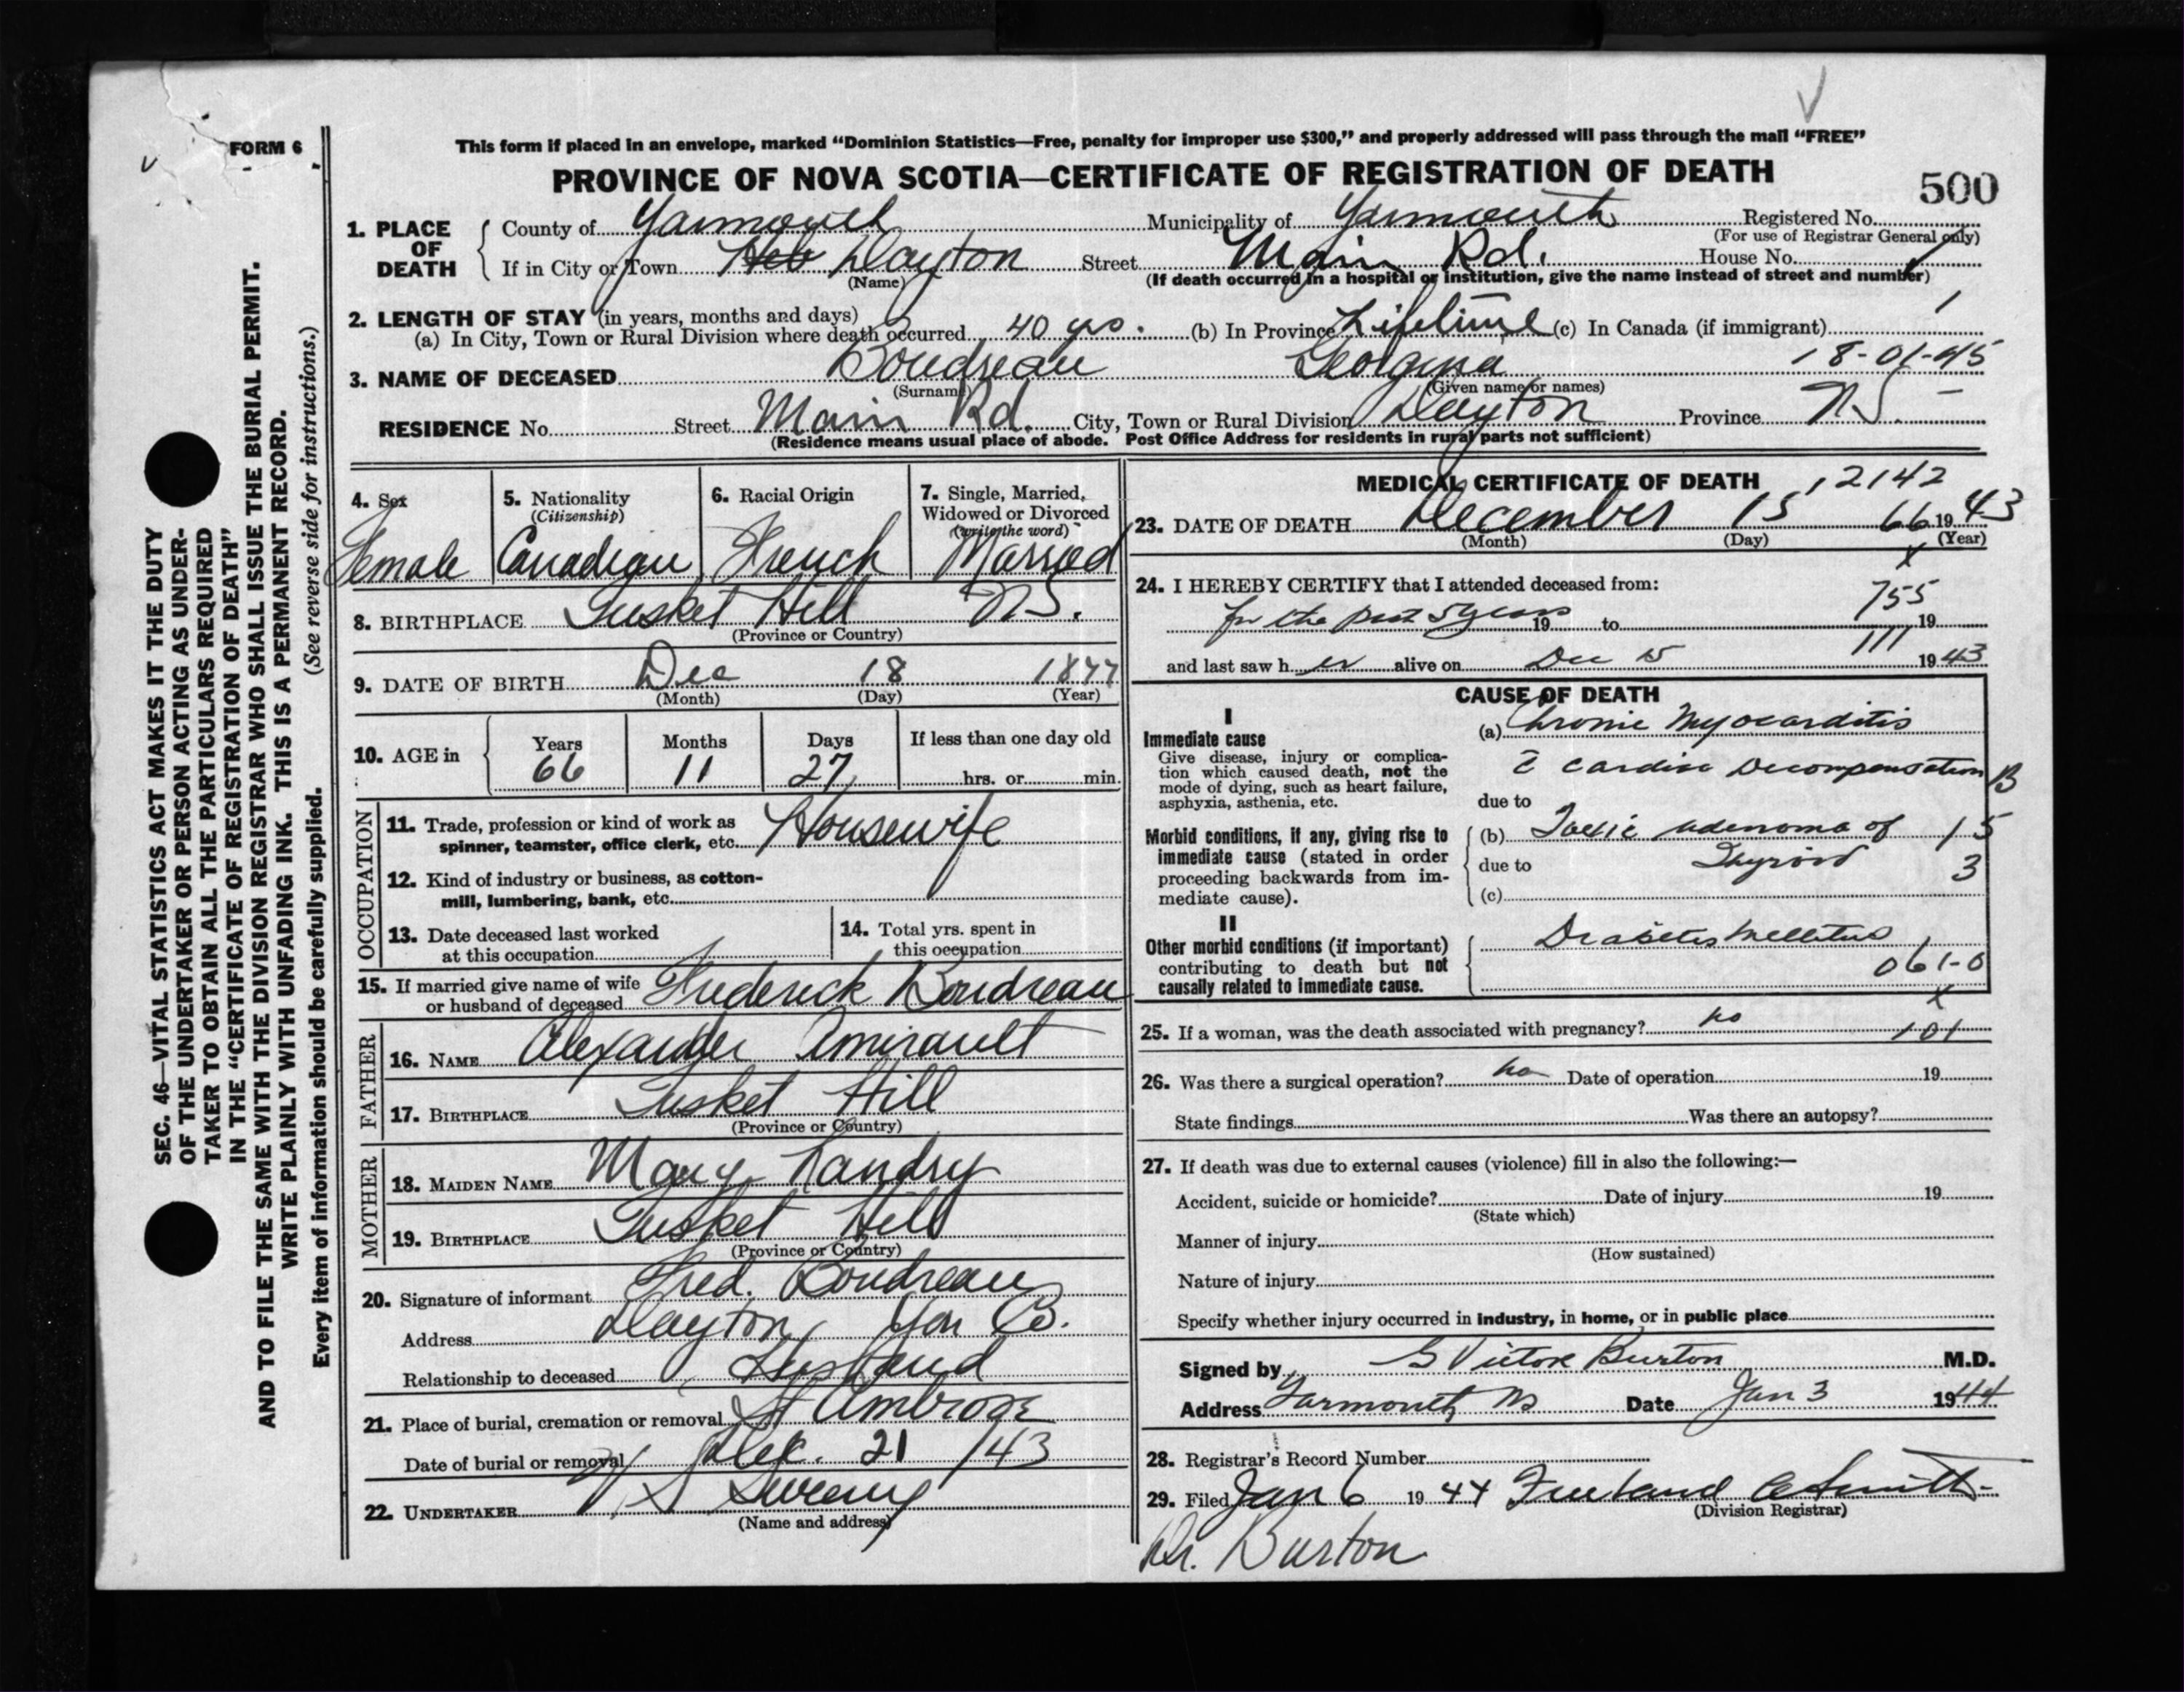 FORM 6
This form if placed in an envelope, marked "Dominion Statistics—Free, penalty for improper use $300," and properly addressed will pass through the mail "FREE"
PROVINCE OF NOVA SCOTIA—CERTIFICATE OF REGISTRATION OF DEATH
500
1. PLACE OF DEATH
County of Yarmouth Municipality of Yarmouth Registered No.
(For use of Registrar General only)
If in City or Town Heb Dayton Street Main Rd. House No.
(Name) (If death occurred in a hospital or institution, give the name instead of street and number)
2. LENGTH OF STAY (in years, months and days)
(a) In City, Town or Rural Division where death occurred 40 yrs. (b) In Province Lifetime (c) In Canada (if immigrant)
3. NAME OF DECEASED Boudreau Georgina 18-01-45
(Surname) (Given name or names)
RESIDENCE No. Street Main Rd. City, Town or Rural Division Dayton Province N.S.
(Residence means usual place of abode. Post Office Address for residents in rural parts not sufficient)
4. Sex
Female
5. Nationality
(Citizenship)
Canadian
6. Racial Origin
French
7. Single, Married, Widowed or Divorced
(write the word)
Married
8. BIRTHPLACE Tusket Hill N.S.
(Province or Country)
9. DATE OF BIRTH Dec 18 1877
(Month) (Day) (Year)
10. AGE in Years Months Days If less than one day old
66 11 27 hrs. or min.
OCCUPATION
11. Trade, profession or kind of work as
spinner, teamster, office clerk, etc. Housewife
12. Kind of industry or business, as cotton-
mill, lumbering, bank, etc.
13. Date deceased last worked
at this occupation
14. Total yrs. spent in
this occupation
15. If married give name of wife
or husband of deceased Frederick Boudreau
FATHER
16. NAME Alexander Amirault
17. BIRTHPLACE Tusket Hill
(Province or Country)
MOTHER
18. MAIDEN NAME Mary Landry
19. BIRTHPLACE Tusket Hill
(Province or Country)
20. Signature of informant Fred. Boudreau
Address Dayton, Yar Co.
Relationship to deceased Husband
21. Place of burial, cremation or removal St Ambrose
Date of burial or removal Dec. 21 /43
22. UNDERTAKER V S Sweeny
(Name and address)
MEDICAL CERTIFICATE OF DEATH 12142
23. DATE OF DEATH December 15 66 1943
(Month) (Day) (Year)
24. I HEREBY CERTIFY that I attended deceased from: x
755
for the past 5 years 19 to 19
111
and last saw h er alive on Dec 15 1943
CAUSE OF DEATH
I
Immediate cause
Give disease, injury or complica-
tion which caused death, not the
mode of dying, such as heart failure,
asphyxia, asthenia, etc.
(a) Chronic Myocarditis
c̄ cardiac Decompensation B
due to
Morbid conditions, if any, giving rise to
immediate cause (stated in order
proceeding backwards from im-
mediate cause).
(b) Toxic adenoma of 15
due to Thyroid 3
(c)
II
Other morbid conditions (if important)
contributing to death but not
causally related to immediate cause.
Diabetes Mellitus
061-0
x
25. If a woman, was the death associated with pregnancy? no 101
26. Was there a surgical operation? no Date of operation 19
State findings Was there an autopsy?
27. If death was due to external causes (violence) fill in also the following:—
Accident, suicide or homicide? Date of injury 19
(State which)
Manner of injury
(How sustained)
Nature of injury
Specify whether injury occurred in industry, in home, or in public place
Signed by G Victor Burton M.D.
Address Yarmouth NS Date Jan 3 1944
28. Registrar's Record Number
29. Filed Jan 6 1944 Freeland A Smith
(Division Registrar)
Dr. Burton
SEC. 46—VITAL STATISTICS ACT MAKES IT THE DUTY
OF THE UNDERTAKER OR PERSON ACTING AS UNDER-
TAKER TO OBTAIN ALL THE PARTICULARS REQUIRED
IN THE "CERTIFICATE OF REGISTRATION OF DEATH"
AND TO FILE THE SAME WITH THE DIVISION REGISTRAR WHO SHALL ISSUE THE BURIAL PERMIT.
WRITE PLAINLY WITH UNFADING INK. THIS IS A PERMANENT RECORD.
Every item of information should be carefully supplied. (See reverse side for instructions.)